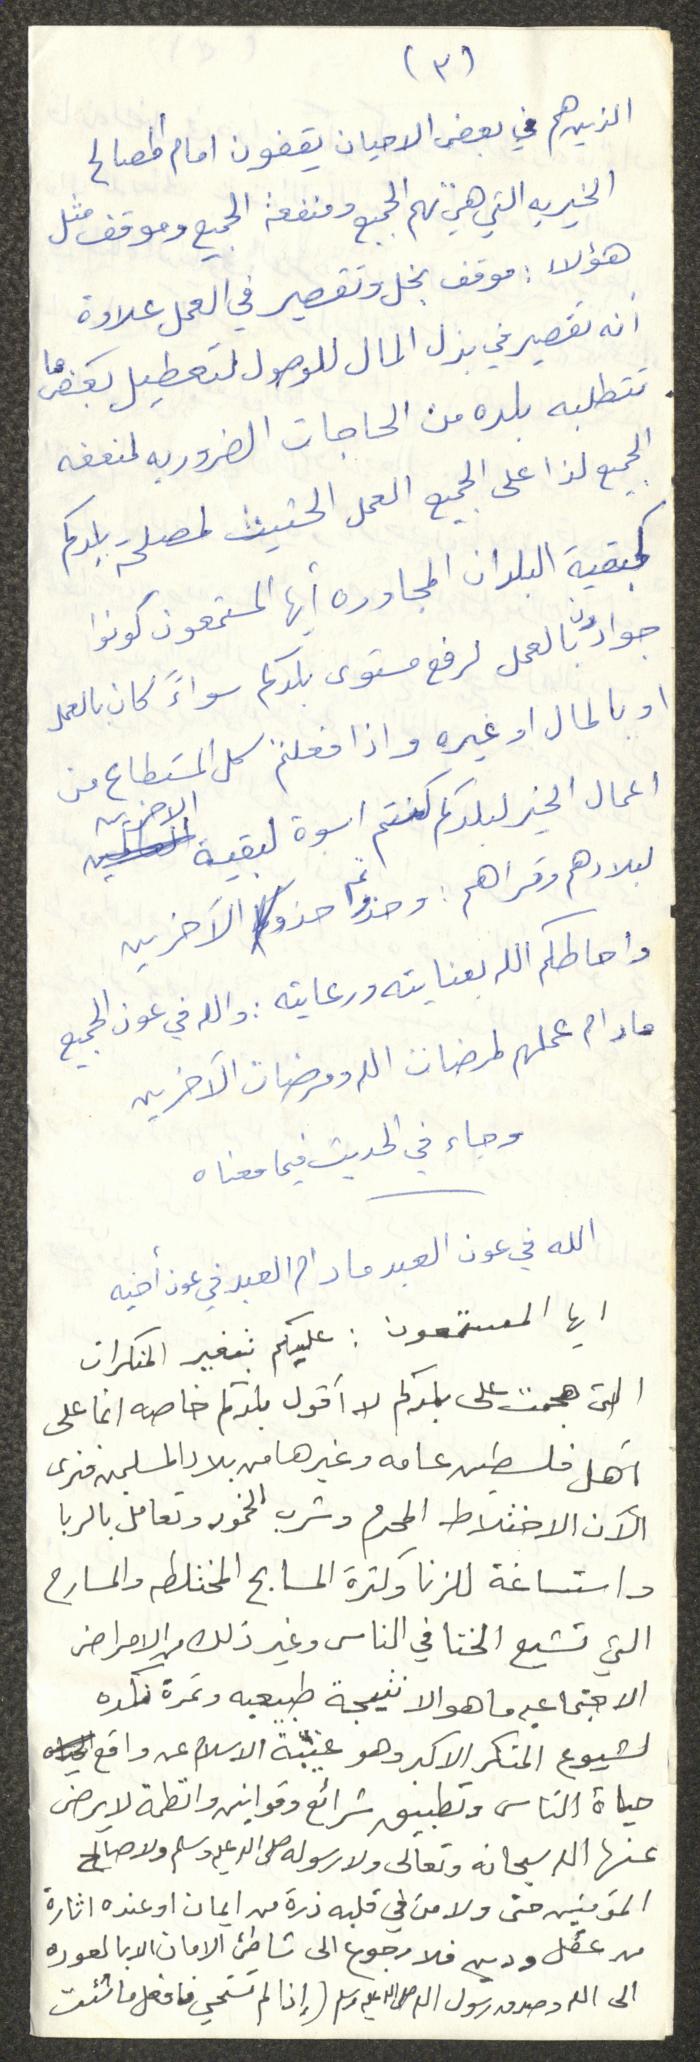 (٣)
الذين هم في بعض الاحيان يقفون امام المصالح
الخيريه التي هي تهم الجميع ومنفعة الجميع وموقف مثل
هؤلا : موقف بخل وتقصير في العمل علاوة
أنه تقصير في بذل المال للوصول لتعطيل بعض ما
تتطلبه بلده من الحاجات الضروريه لمنفعه
الجميع لذا على الجميع العمل الحثيث لمصلحة بلدكم
كبقية البلدان المجاوره أيها المستمعون كونوا
جوادون بالعمل لرفع مستوى بلدكم سواءً كان بالعمل
او بالمال او غيره واذا فعلتم كل المستطاع من
اعمال الخير لبلدكم كنتم اسوة لبقية الاخرين
لبلادهم وقراهم : وحذوتم حذو الآخرين
واحاطكم الله بعنايته ورعايته : والله في عون الجميع
مادام عملهم لمرضات الله ومرضات الآخرين
وجاء في الحديث فيما معناه
الله في عون العبد مادام العبد في عون أخيه
ايها المستمعون : عليكم بتغير المنكرات
التي هجمت على بلدكم لا أقول بلدكم خاصه انما على
أهل فلسطين عامه وغيرها من بلاد المسلمين فنرى
الآن الاختلاط المحرم وشرب الخمور وتعامل بالربا
واستساغة للزنا وكثرة المسابح المختلطه والمسارح
التي تشيع الخنا في الناس وغير ذلك من الامراض
الاجتماعيه ما هو الا نتيجة طبيعيه وثمرة نكده
لشيوع المنكر الاكبر وهو غيبة الاسلام عن واقع
حياة الناس وتطبيق شرائع وقوانين وانظمة لا يرضى
عنها الله سبحانه وتعالى ولا رسوله صلى الله عليه وسلم ولا صالح
المؤمنين حتى ولا من في قلبه ذرة من ايمان او عنده اثارة
من عقل ودين فلا رجوع الى شاطئ الامان الا بالعوده
الى الله وصدق رسول الله صلى الله عليه وسلم (إذا لم تستحي فافعل ما شئت